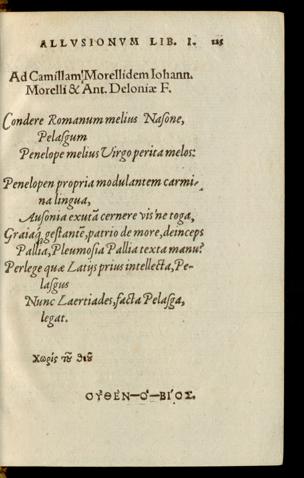 ALLVSIONVM LIB. I. 125
Ad Camillam Morellidem Iohann.
Morelli & Ant. Deloniæ F.
Condere Romanum melius Nasone,
Pelasgum
Penelope melius Virgo perita melos:
Penelopen propria modulantem carmi-
na lingua,
Ausonia exutã cernere vis'ne toga,
Graiaq́; gestantẽ, patrio de more, deinceps
Pallia, Pleumosia Pallia texta manu?
Perlege quæ Latijs prius intellecta, Pe-
lasgus
Nunc Laertiades, facta Pelasga,
legat.
Χωρὶς τȣ͂ Θεȣ͂
ΟΥ̓ΘΈΝ—Ὁ—ΒΊΟΣ.